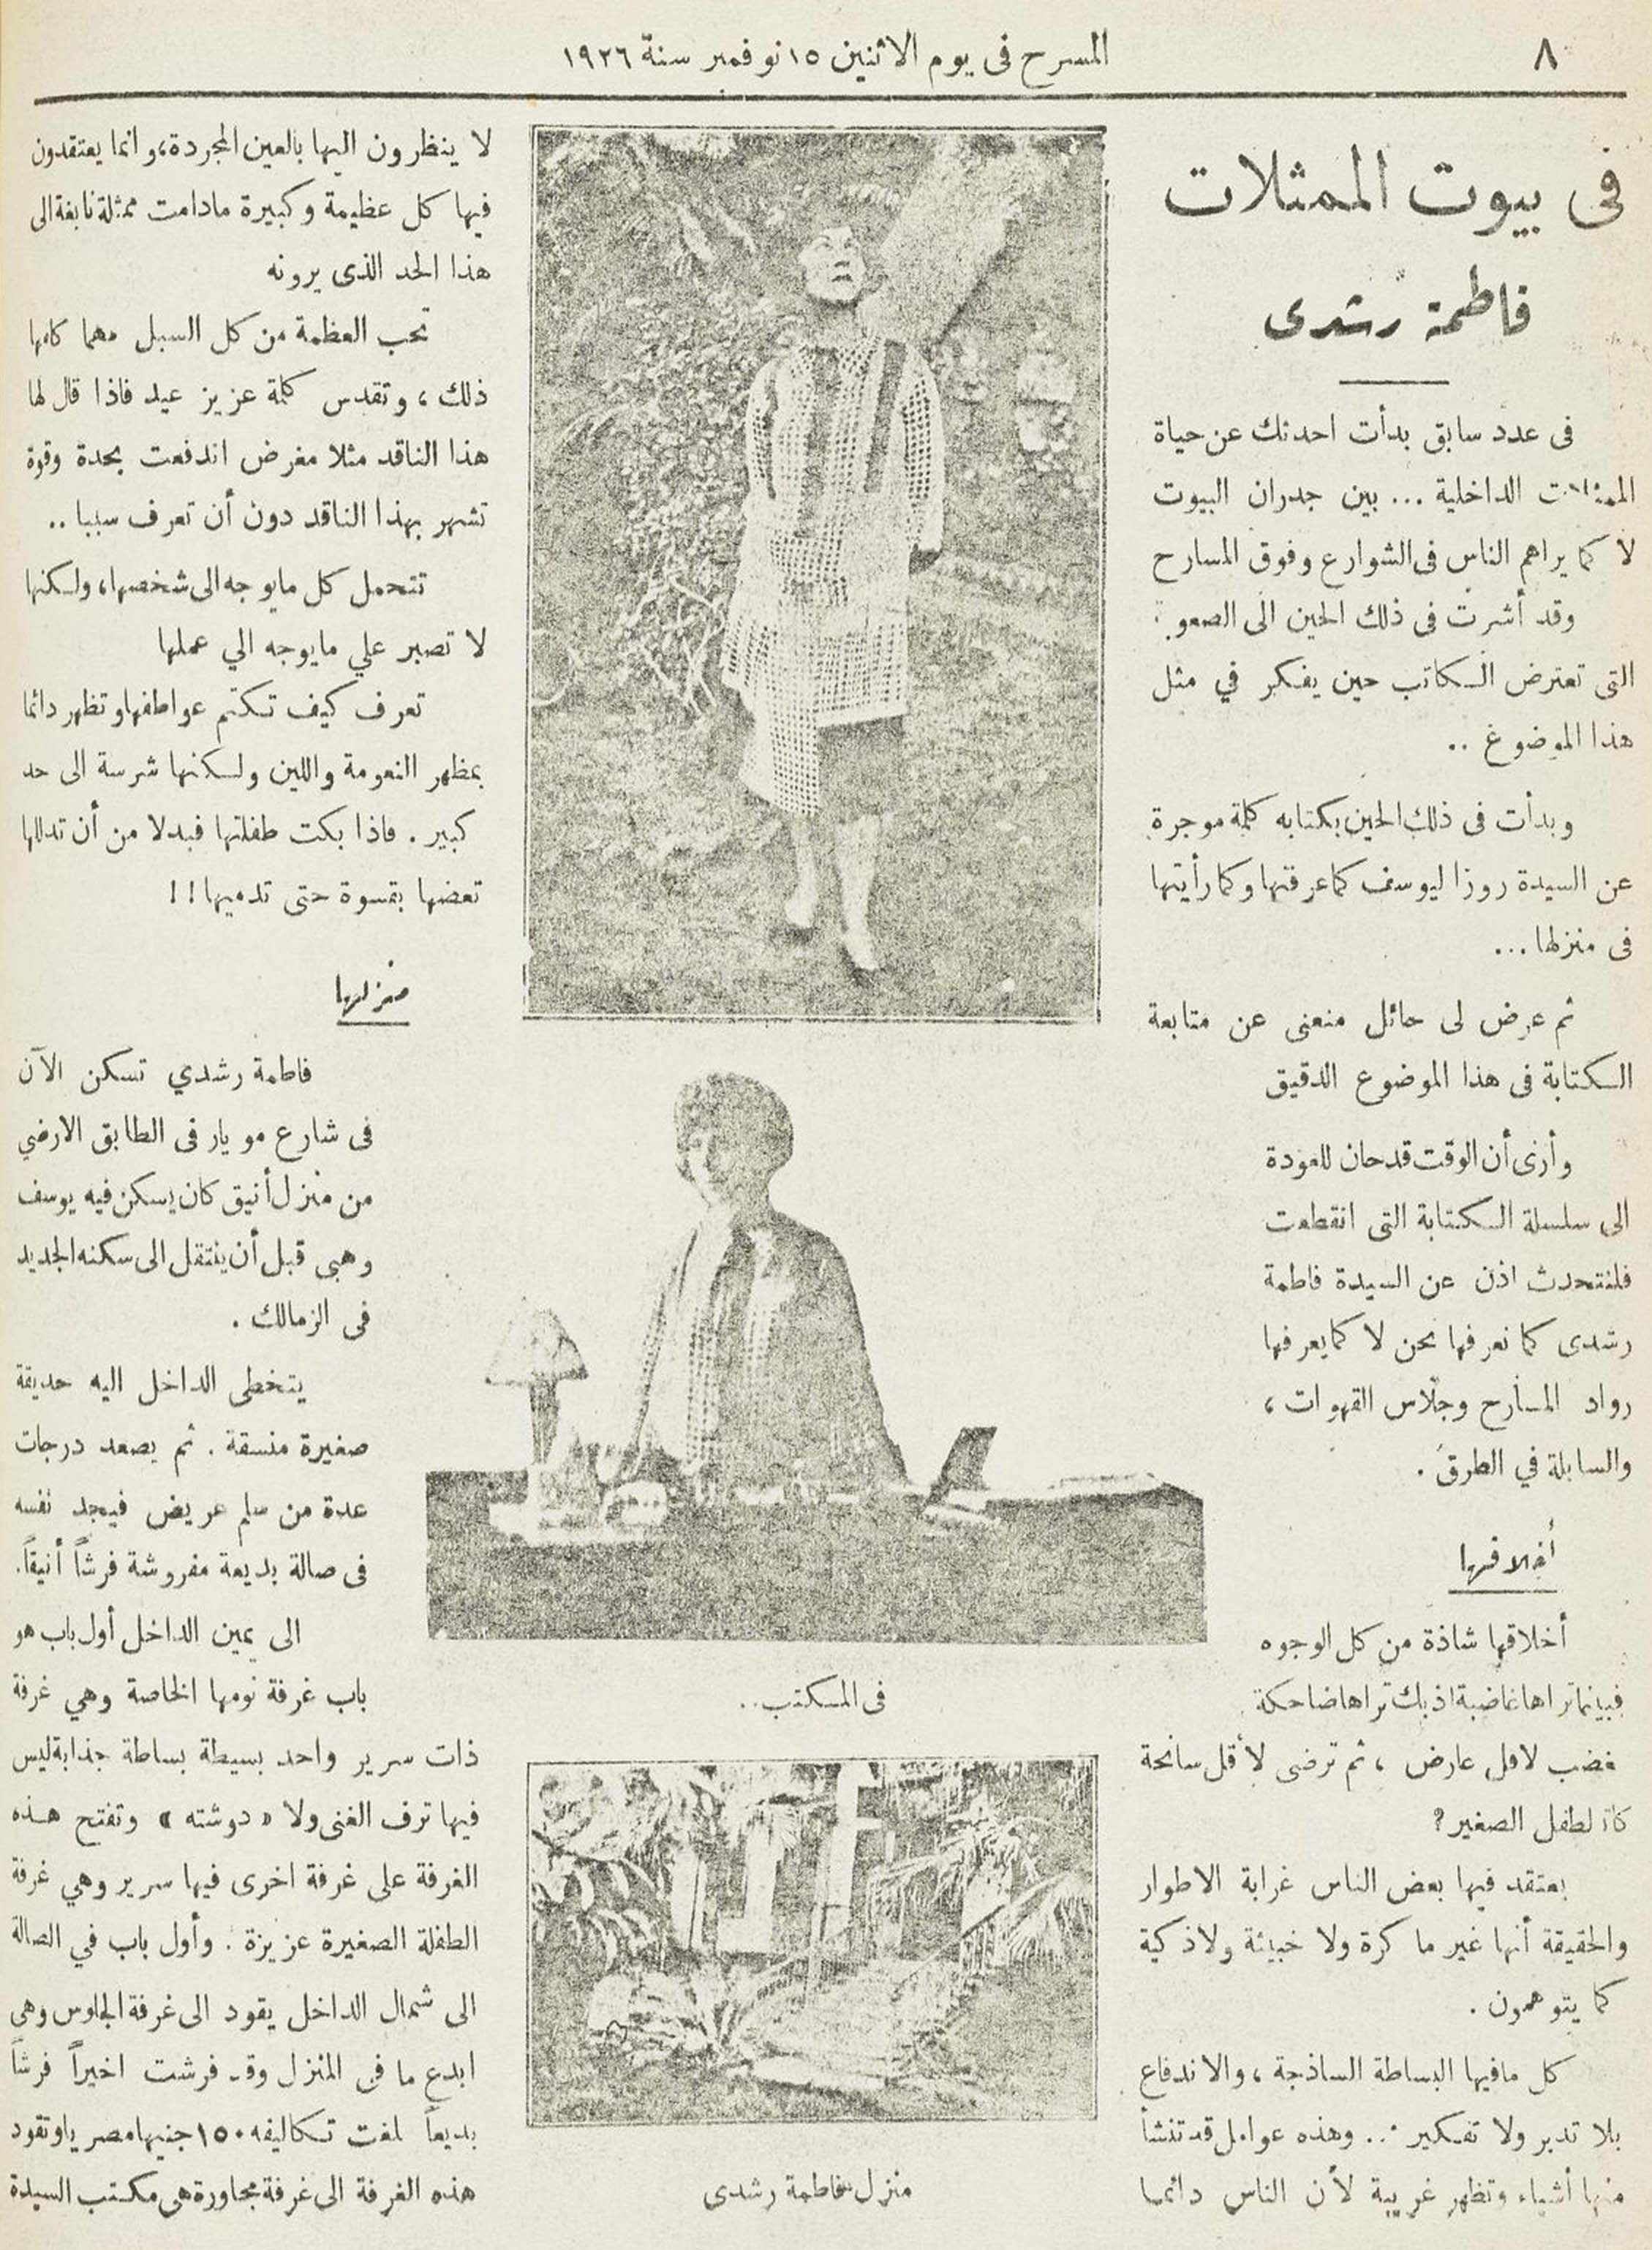 ٨
المسرح فى يوم الاثنين ١٥ نوفمبر سنة ١٩٢٦
فى بيوت الممثلات
فاطمة رشدى
فى عدد سابق بدأت احدثك عن حياة
الممثلات الداخلية ... بين جدران البيوت
لا كما يراهم الناس فى الشوارع وفوق المسارح
وقد أشرت فى ذلك الحين الى
التى تعترض الكاتب حين يفكر في مثل
هذا الموضوع ..
وبدأت فى ذلك الحين بكتابه كلمة موجرة
عن السيدة روزا ليوسف كما عرفتها وكما رأيتها
فى منزلها ...
ثم عرض لى حائل منعنى عن متابعة
الكتابة فى هذا الموضوع الدقيق
وأرى أن الوقت قد حان للعودة
الى سلسلة الكتابة التى انقطعت
فلنتحدث اذن عن السيدة فاطمة
رشدى كما نعرفها نحن لا كما يعرفها
رواد المسارح وجلاس القهوات ،
والسابلة في الطرق .
أخلاقها
أخلاقها شاذة من كل الوجوه
فبينما تراها غاضبة اذ بك تراها ضاحكة
غضب لاقل عارض ، ثم ترضى لأقل سانحة
لطفل الصغير ؟
يعتقد فيها بعض الناس غرابة الاطوار
والحقيقة أنها غير ما كرة ولا خبيثة ولا ذكية
كما يتوهمون .
كل مافيها البساطة الساذجة ، والاندفاع
بلا تدبر ولا تفكير .. وهذه عوامل قد تنشأ
منها أشياء وتظهر غريبة لأن الناس دائما
فى المكتب ..
منزل فاطمة رشدى
لا ينظرون اليها بالعين المجردة، وانما يعتقدون
فيها كل عظيمة وكبيرة مادامت ممثلة نابغة الى
هذا الحد الذى يرونه
تحب العظمة من كل السبل مهما كلفها
ذلك ، وتقدس كلمة عزيز عيد فاذا قال لها
هذا الناقد مثلا مغرض اندفعت بحدة وقوة
تشهر بهذا الناقد دون أن تعرف سببا ..
تتحمل كل مايوجه الى شخصها، ولكنها
لا تصبر علي مايوجه الي عملها
تعرف كيف تكتم عواطفها وتظهر دائما
بمظهر النعومة واللين ولكنها شرسة الى حد
كبير . فاذا بكت طفلتها فبدلا من أن تدللها
تعضها بقسوة حتى تدميها !!
منزلها
فاطمة رشدي تسكن الآن
فى شارع مو يار فى الطابق الارضي
من منزل أنيق كان يسكن فيه يوسف
وهبى قبل أن ينتقل الى سكنه الجديد
فى الزمالك .
يتخطى الداخل اليه حديقة
صغيرة منسقة . ثم يصعد درجات
عدة من سلم عريض فيجد نفسه
فى صالة بديعة مفروشة فرشاً أنيقاً.
الى يمين الداخل أول باب هو
باب غرفة نومها الخاصة وهي غرفة
ذات سرير واحد بسيطة بساطة جذابة ليس
فيها ترف الغنى ولا « دوشته » وتفتح هذه
الغرفة على غرفة اخرى فيها سرير وهي غرفة
الطفلة الصغيرة عزيزة . وأول باب في الصالة
الى شمال الداخل يقود الى غرفة الجلوس وهى
ابدع ما فى المنزل وقد فرشت اخيراً فرشاً
بديعاً بلغت تكاليفه ١٥٠ جنيها مصريا وتقود
هذه الغرفة الى غرفة مجاورة هى مكتب السيدة